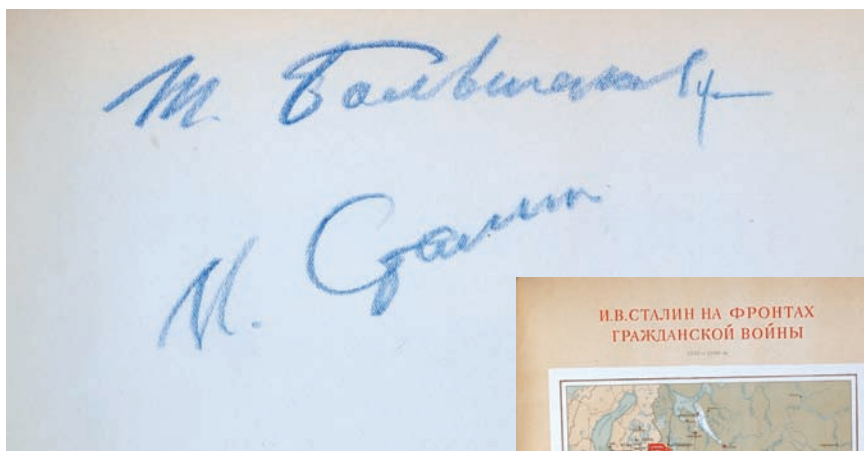 Т. Большакову
И. Сталин
И.В.СТАЛИН НА ФРОНТАХ
ГРАЖДАНСКОЙ ВОЙНЫ